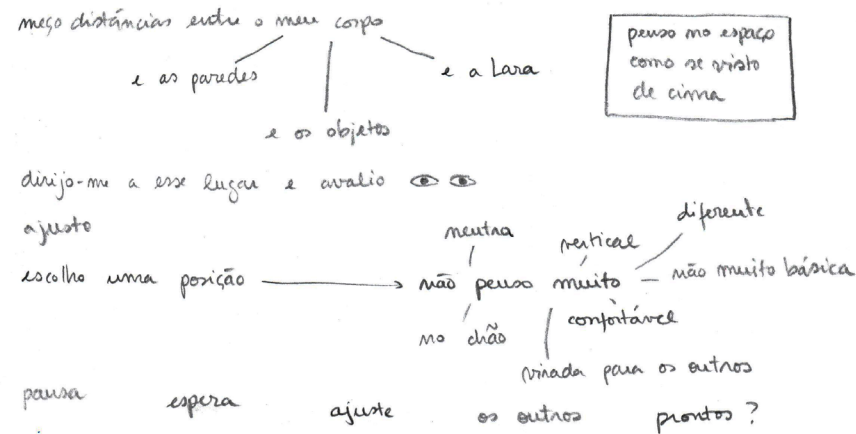 meço distâncias entre o meu corpo
e as paredes
e os objetos
e a Lara
penso no espaço
como se visto
de cima
dirijo-me a esse lugar e avalio
ajusto
escolho uma posição
não penso muito
neutra
vertical
diferente
não muito básica
confortável
no chão
virada para os outros
pausa espera ajuste os outros prontos?